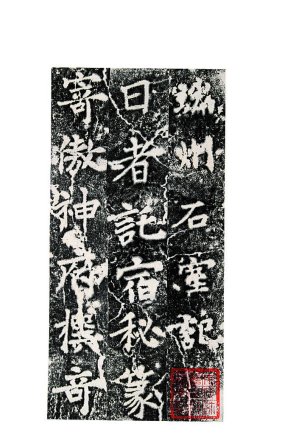 端州石室記
日者託宿秘篆
寄傲神府奇